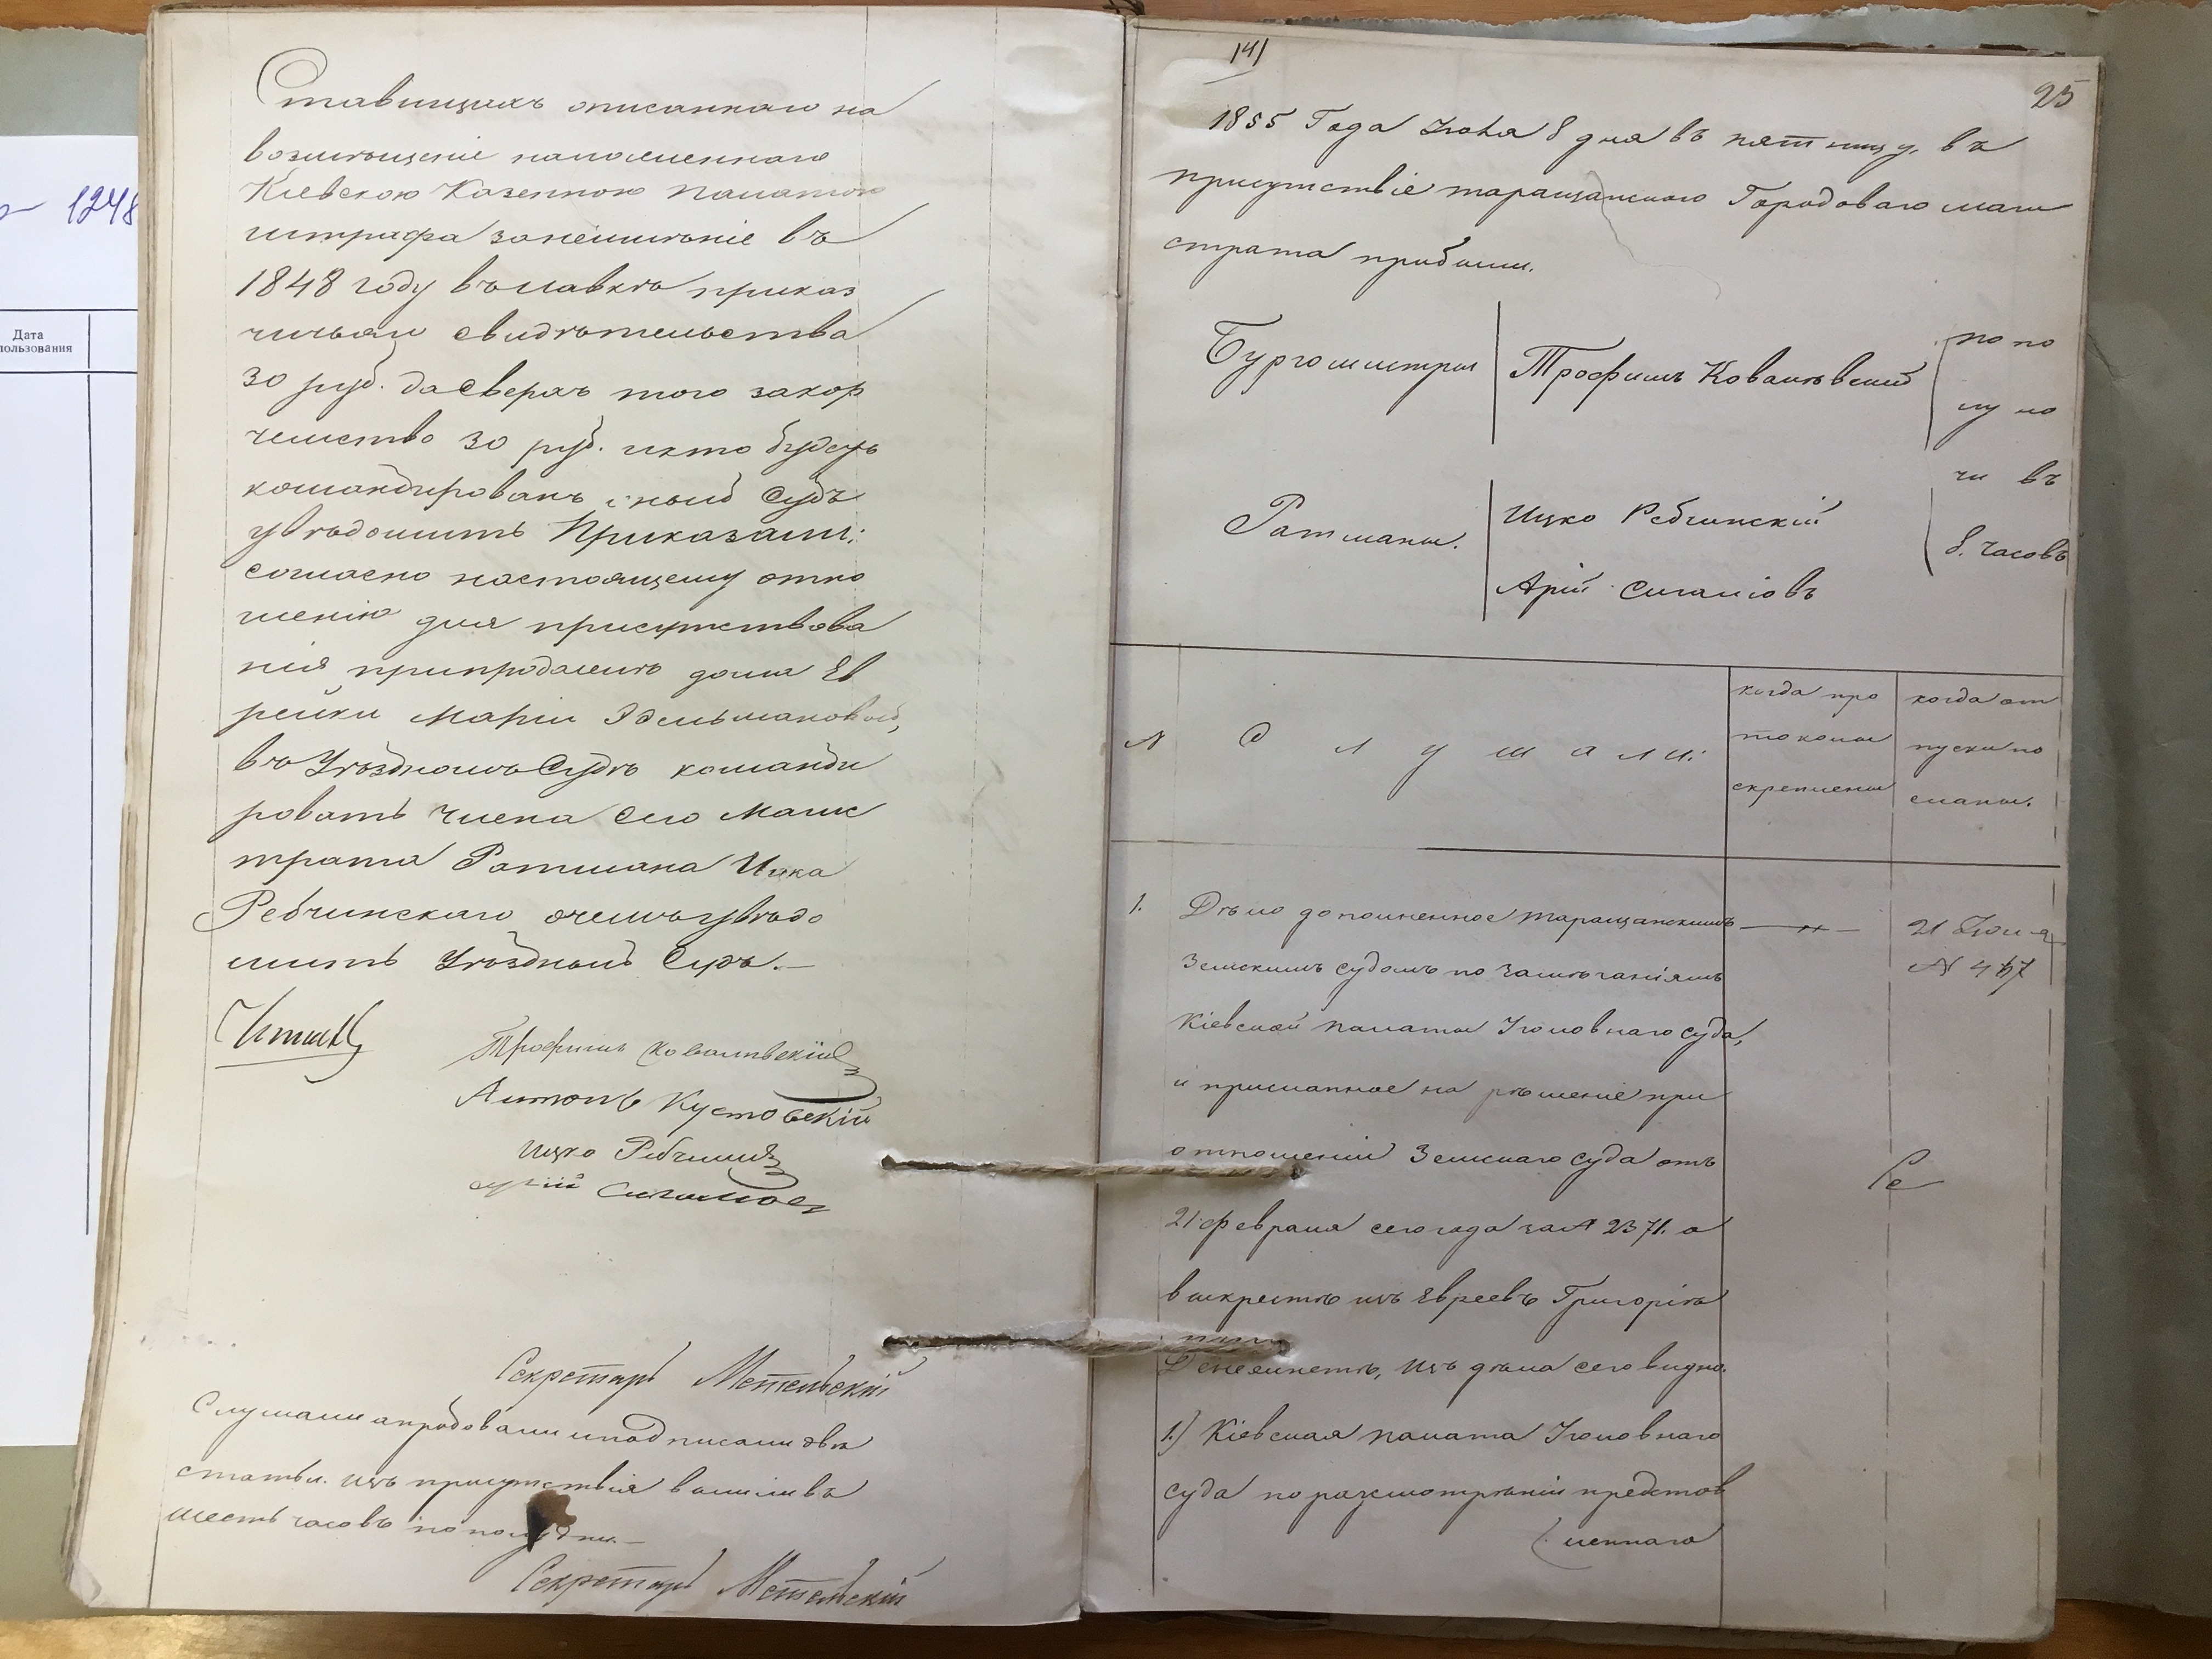 1248
Дата
пользования
Ставищахъ описаннаго на
возмѣщеніе наложеннаго
Кіевскою Казенною палатою
штрафа занеимѣніе въ
1848 году въ лавкѣ приказ
чичьяго свидѣтельства
30 руб. да сверхъ того закор
чемство 30 руб. и кто будетъ
командированъ оный Судъ
увѣдомить Приказали:
согласно настоящему отно
шенію для присутствова
нія при продажѣ дома Ев
рейки Маріи Эдельмановой,
въ Уѣздномъ Судѣ команди
ровать члена сего Магис
трата Ратмана Ицка
Ребчинскаго очемъ увѣдо
мить Уѣздный Судъ.—
Трофимъ Ковалѣвскій
Антонъ Кустовскій
Ицко Ребчинск
арій Сигаловъ
Секретарь Метельскій
Слушали апробовали и подписали двѣ
статьи. изъ присутствія вышли въ
шесть часовъ по полудни.—
Секретарь Метельскій
141
25
1855 Года Іюля 8 дня въ пятницу, въ
присутствіе таращанскаго Городоваго маги
страта прибыли.
Бургомистры
Трофимъ Ковалѣвскій
по по
лу но
чи въ
8. часовъ
Ратманы.
Ицко Ребчинскій
Арій Сигаловъ
N
Слушали:
когда про
токолы
скреплены
когда от
пуски по
сланы.
1. Дѣло дополненное таращанскимъ
21 Іюля
N 4
Земскимъ судомъ по замѣчаніямъ
Кіевской палаты Уголовнаго суда,
и присланное на рѣшеніе при
отношеніи Земскаго суда отъ
21 февраля сего года за N 2371. о
выкрестѣ изъ Евреевъ Григоріѣ
изъ дѣла сего видно.
1.) Кіевская палата Уголовнаго
суда по разсмотрѣніи представ
леннаго